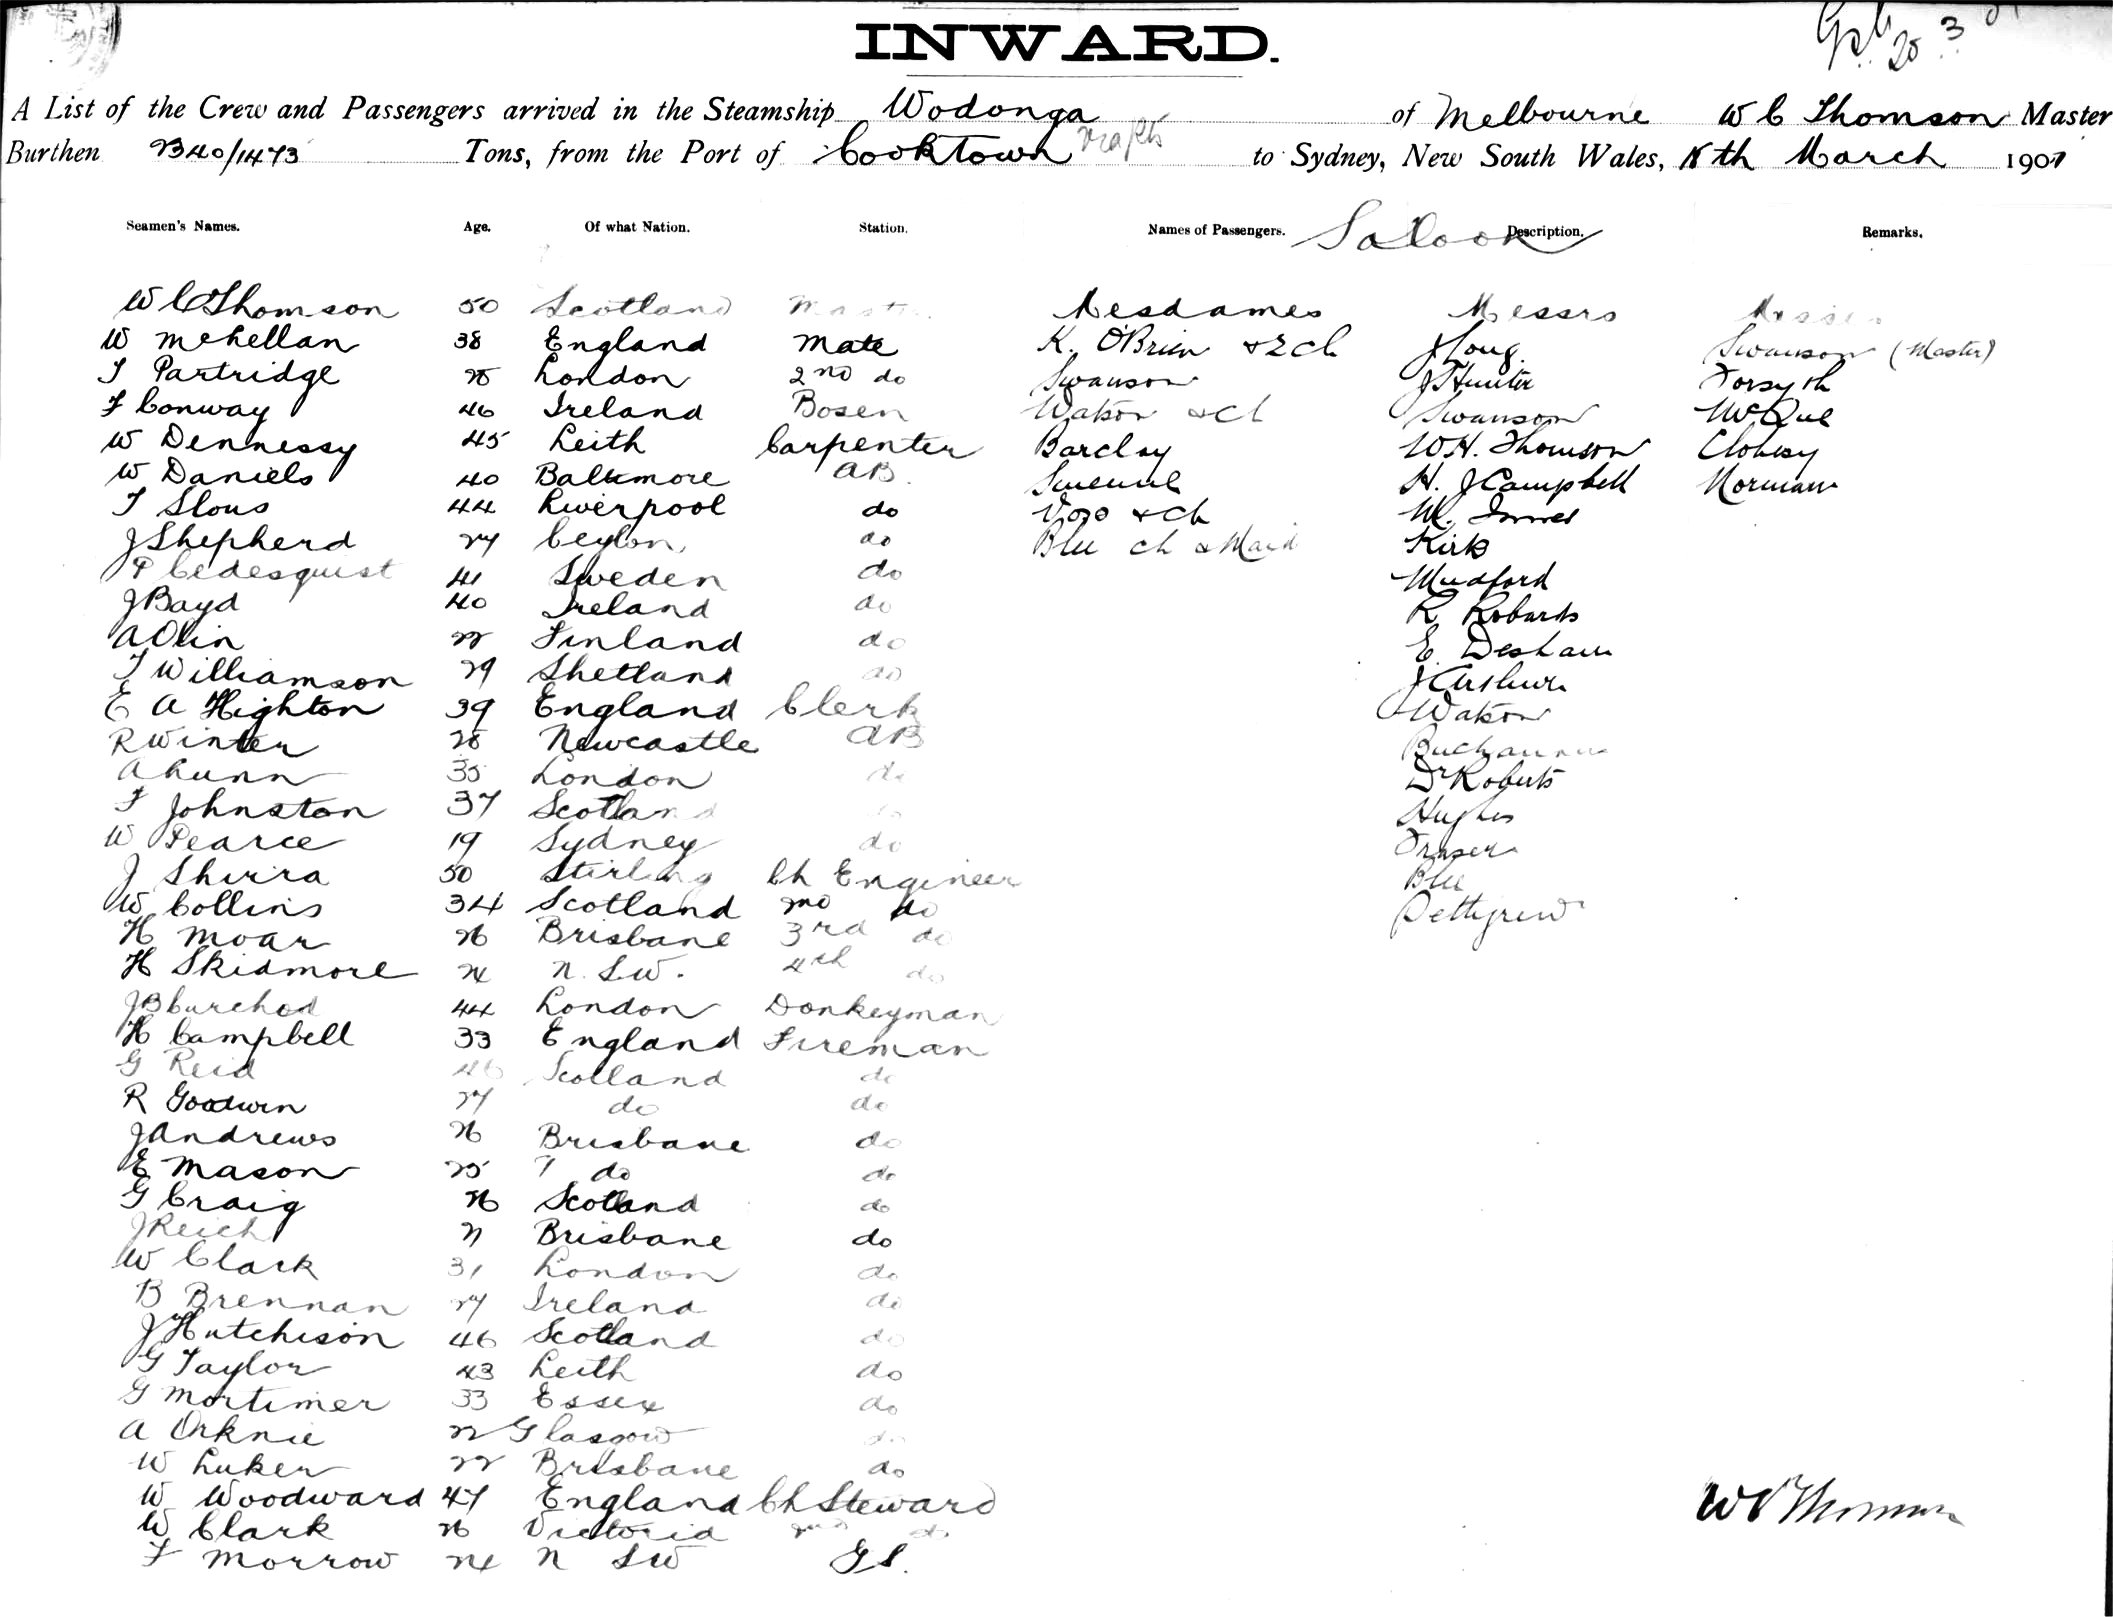 INWARD.
20 3
A List of the Crew and Passengers arrived in the Steamship Wodonga of Melbourne W C Thomson Master
Burthen 2340/1473 Tons, from the Port of Cooktown to Sydney, New South Wales, 18th March 1901
Seamen's Names. Age. Of what Nation. Station. Names of Passengers. Saloon Description. Remarks.
W C Thomson 50 Scotland Master Mesdames Messrs Misses
W McLellan 38 England Mate K. O'Brien & 2 ch J Long Swanson (Master)
T Partridge 28 London 2nd do Swanson J Hunter Forsyth
F Conway 46 Ireland Bosen Watson & Ch Swanson McQue
W Dennessy 45 Leith Carpenter Barclay W.H. Thomson Clohesy
W Daniels 40 Baltimore AB H. J Campbell Norman
T Slous 44 Liverpool do Voss & Ch W. Innes
J Shepherd 27 Ceylon, do Blee ch & Maid Kirk
P Cedesquist 41 Sweden do Mudford
J Boyd 40 Ireland do R Roberts
A Olin 22 Finland do E. Desham
T Williamson 29 Shetland do
E A Highton 39 England Clerk Watson
R Winter 28 Newcastle AB Buchanan
A Lunn 35 London do Dr Roberts
F Johnston 37 Scotland do Hughes
W Pearce 19 Sydney do Fraser
J Shirra 50 Stirling Ch Engineer Blee
W Collins 34 Scotland 2nd do Pettigrew
H Moar 26 Brisbane 3rd do
H Skidmore 24 N.S.W. 4th do
J B Curchod 44 London Donkeyman
H Campbell 33 England Fireman
G Reid 46 Scotland do
R Goodwin 27 do do
J Andrews 26 Brisbane do
E Mason 25 do do
G Craig 26 Scotland do
J Reich 21 Brisbane do
W Clark 31 London do
B Brennan 27 Ireland do
J Hutchison 46 Scotland do
G Taylor 43 Leith do
G Mortimer 33 Essex do
A Orknie 22 Glasgow do
W Luker 22 Brisbane do
W Woodward 47 England Ch Steward
W Clark 26 Victoria 2nd do
F Morrow 24 N S W G S.
W C Thomson